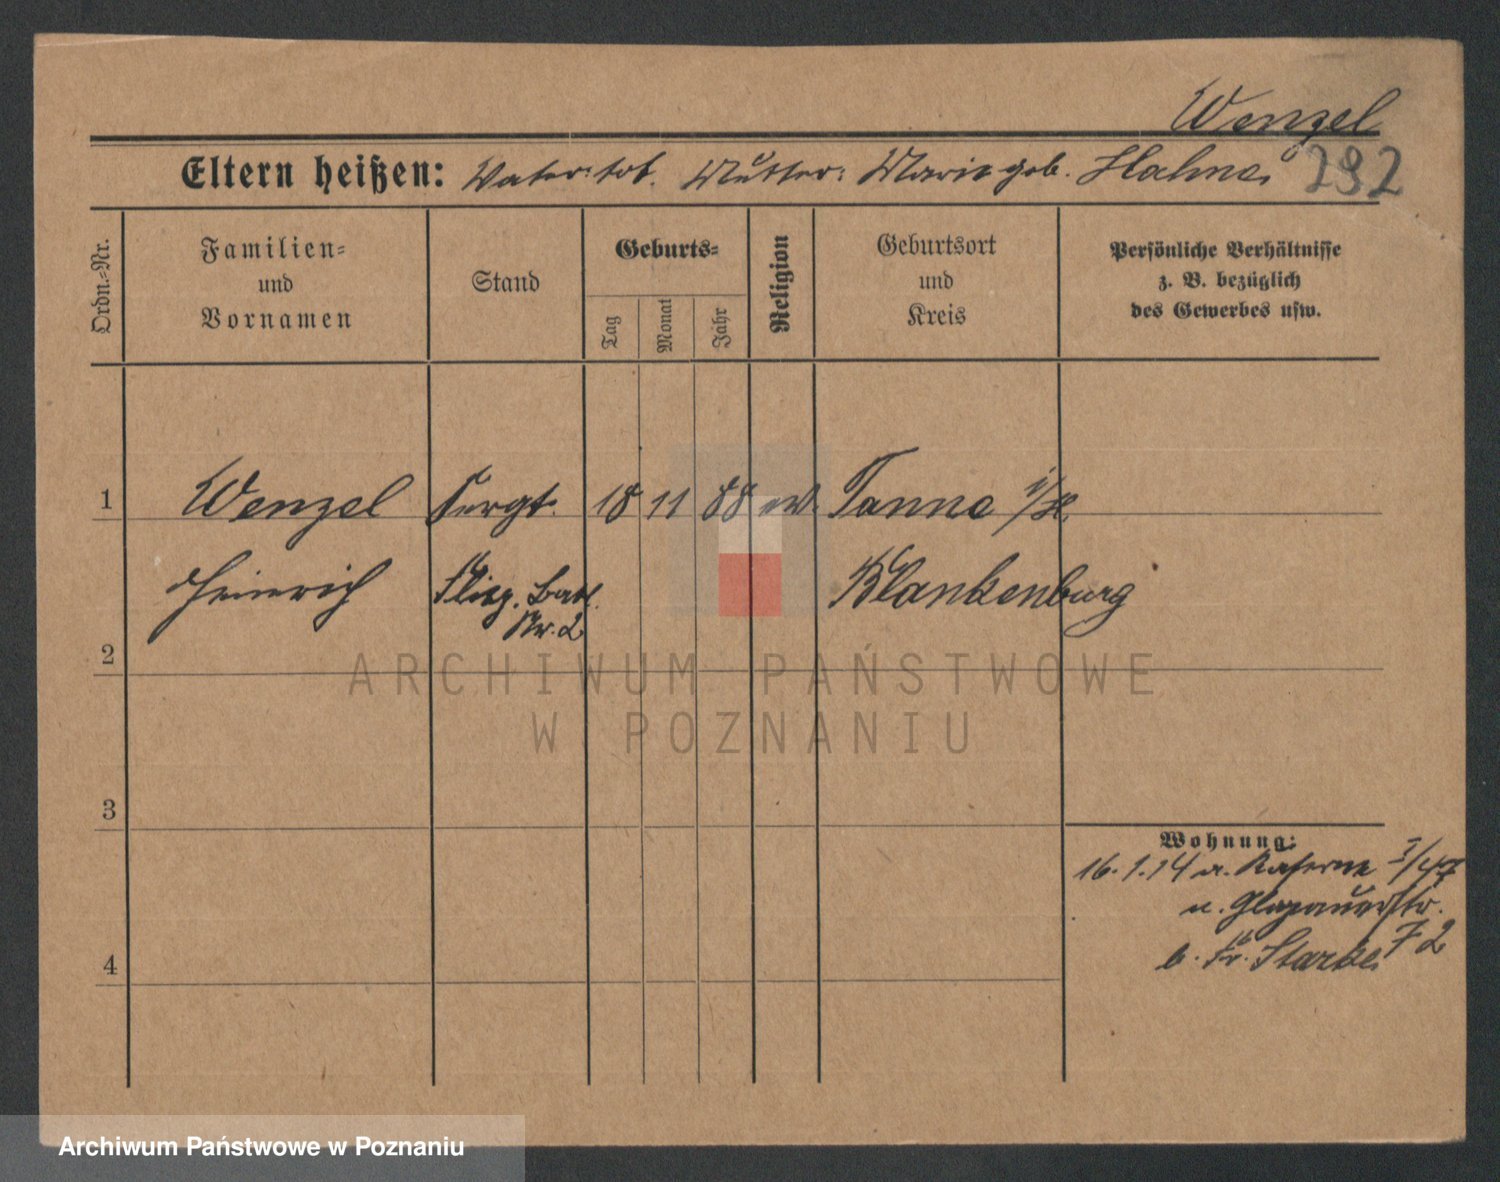 Wenzel
Eltern heißen: Vater: tot. Mutter: Marie geb. Hahne 292
Ordn.-Nr.
Familien-
und
Vornamen
Stand
Geburts-
Tag
Monat
Jahr
Religion
Geburtsort
und
Kreis
Persönliche Verhältnisse
z. B. bezüglich
des Gewerbes usw.
1 Wenzel Sergt. 18 11 88 ev. Tanne i/H.
Heinrich Flieg. Batl. Blankenburg
Nr. 2
2
ARCHIWUM PAŃSTWOWE
W POZNANIU
3
Wohnung:
16.1.14 a. Kaserne I/47
n. Glogauerstr.
72
b. Fr. Starke
4
Archiwum Państwowe w Poznaniu